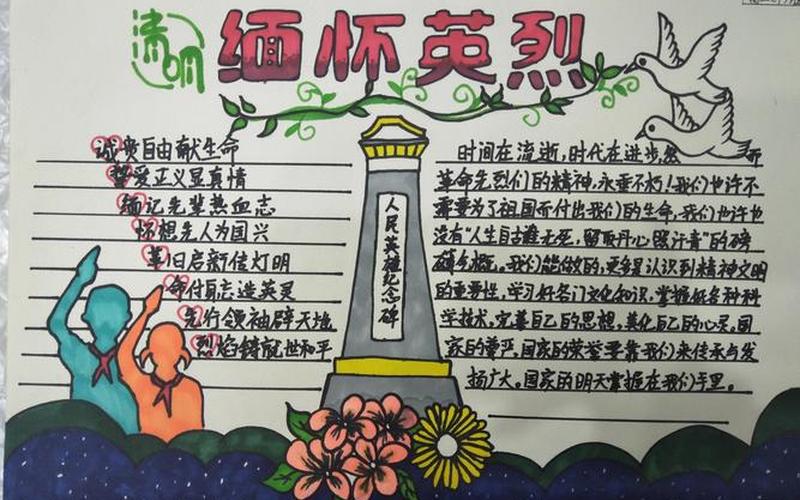 清明
缅怀英烈
诚贵自由献生命
挚爱正义显真情
缅记先辈热血志
怀想先人为国兴
革旧启新传灯明
命付自志造英灵
先行领袖辟天地
烈焰铸就世和平
人民英雄纪念碑
时间在流逝,时代在进步,然而
革命先烈们的精神,永垂不朽!我们也许不
需要为了祖国而付出我们的生命,我们也许也
没有“人生自古谁无死,留取丹心照汗青”的磅
礴气概。我们能做的,更多是认识到精神文明
的重要性,学习好各门文化知识,掌握好各种科
学技术,完善自己的思想,美化自己的心灵。国
家的尊严,国家的荣誉要靠我们来传承与发
扬广大。国家的明天掌握在我们手里。